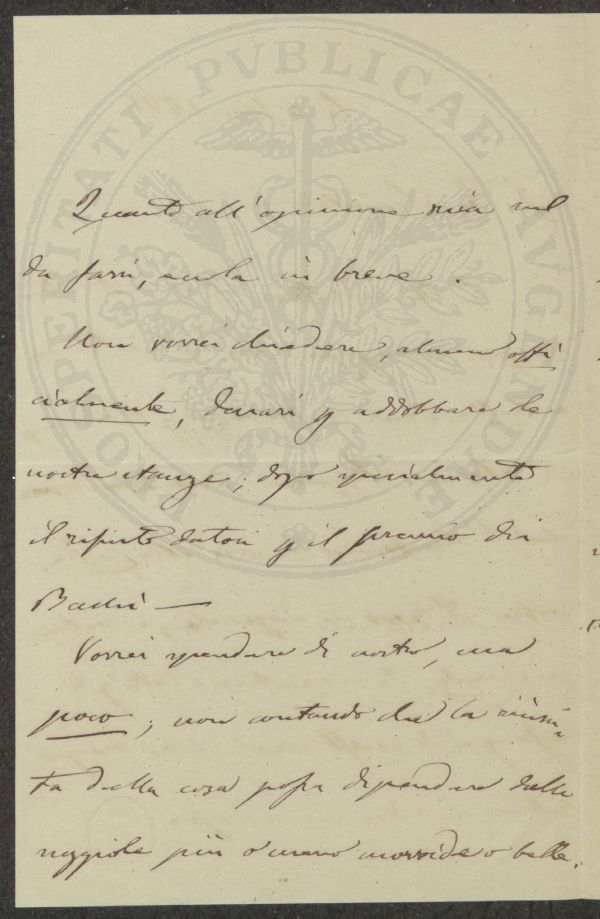 PROSPERITATI PVBLICAE AVGENDAE
Quanto all'opinione mia sul
da farsi, eccola in breve.
Non vorrei chiedere, almeno offi
cialmente, danari p addobbare le
nostre stanze; dopo specialmente
il rifiuto datoci p il premio di
Bachi —
Vorrei spendere di nostro, ma
poco; non contando che la riusci
ta della cosa possa dipendere dalle
seggiole più o meno morvide o belle.